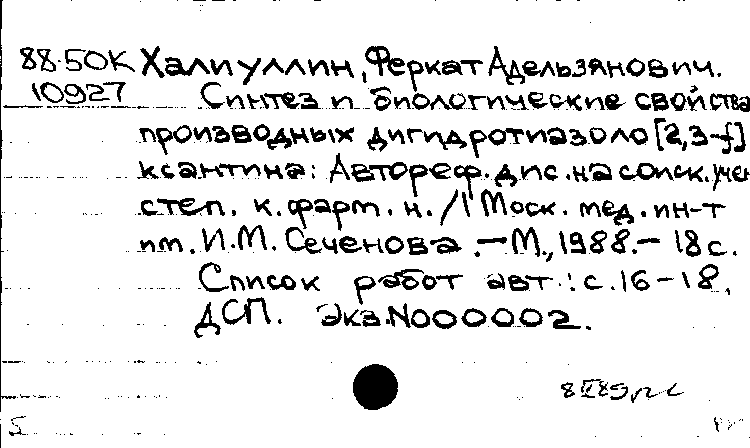 88-50К Халиуллин, Феркат Адельзянович.
10927 Синтез и биологические свойства
производных дигидротиазоло[2,3-f]
ксантина: Автореф. дис. на соиск. учен
степ. к. фарм. н. / 1 Моск. мед. ин-т
им. И.М. Сеченова. — М., 1988. — 18 с.
Список работ авт.: с. 16-18.
ДСП. Экз. N000002.
5